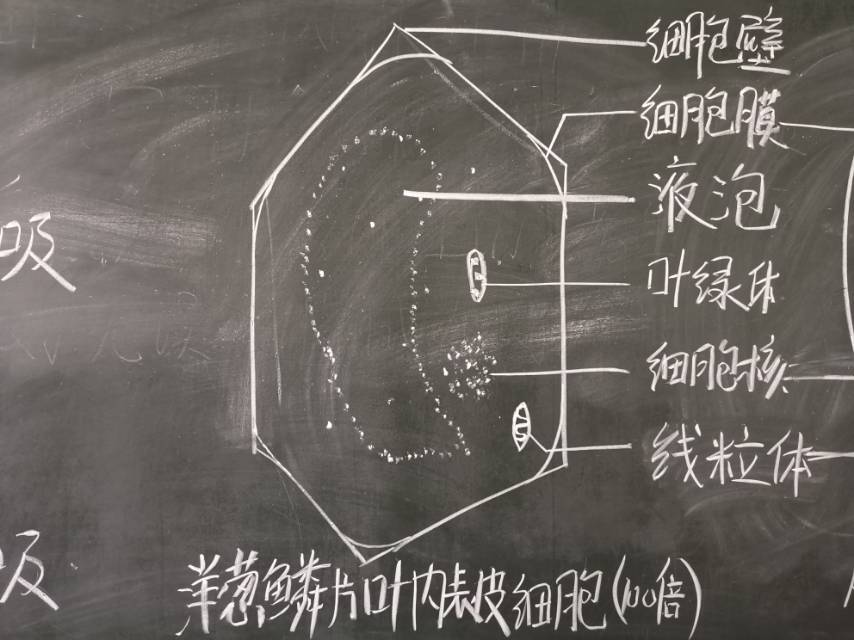 细胞壁
细胞膜
液泡
吸
叶绿体
细胞核
线粒体
吸
洋葱鳞片叶内表皮细胞(100倍)